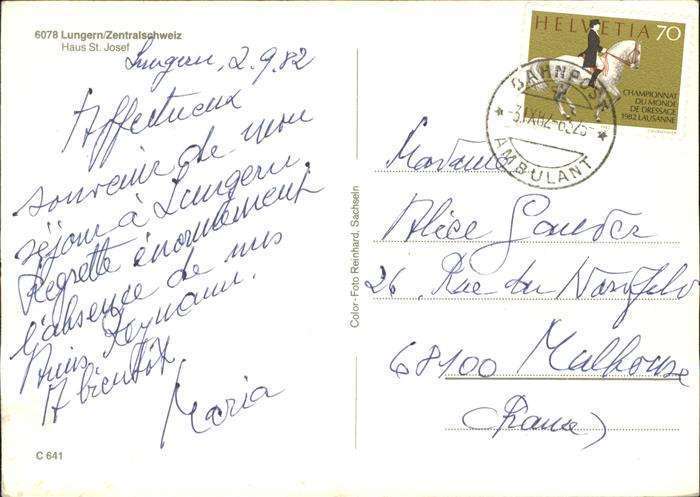 6078 Lungern/Zentralschweiz
Haus St. Josef
Lungern, 2.9.82
Affectueux
souvenir de mon
séjour à Lungern.
Regrette énormément
l'absence de mes
Amis Reymann.
A bientôt.
Maria
C 641
Color-Foto Reinhard, Sachseln
HELVETIA 70
CHAMPIONNAT
DU MONDE
DE DRESSAGE
1982 LAUSANNE
BAHNPOST
AMBULANT
Madame
Alice Gander
26, Rue du
68100 Malhouse
(France)